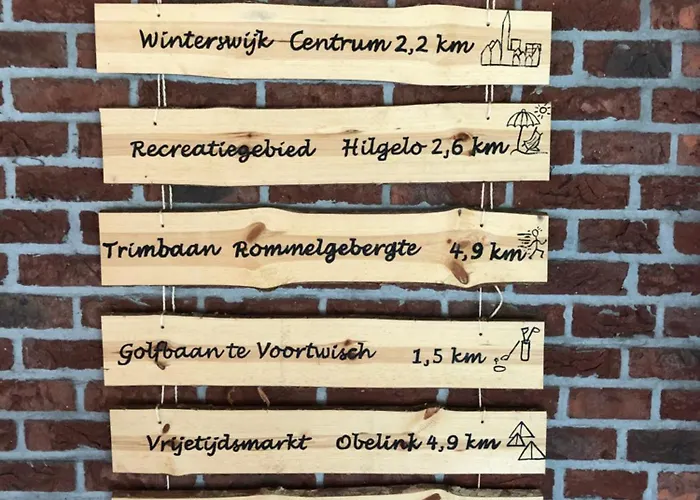 Winterswijk Centrum 2,2 km
Recreatiegebied Hilgelo 2,6 km
Trimbaan Rommelgebergte 4,9 km
Golfbaan te Voortwisch 1,5 km
Vrijetijdsmarkt Obelink 4,9 km